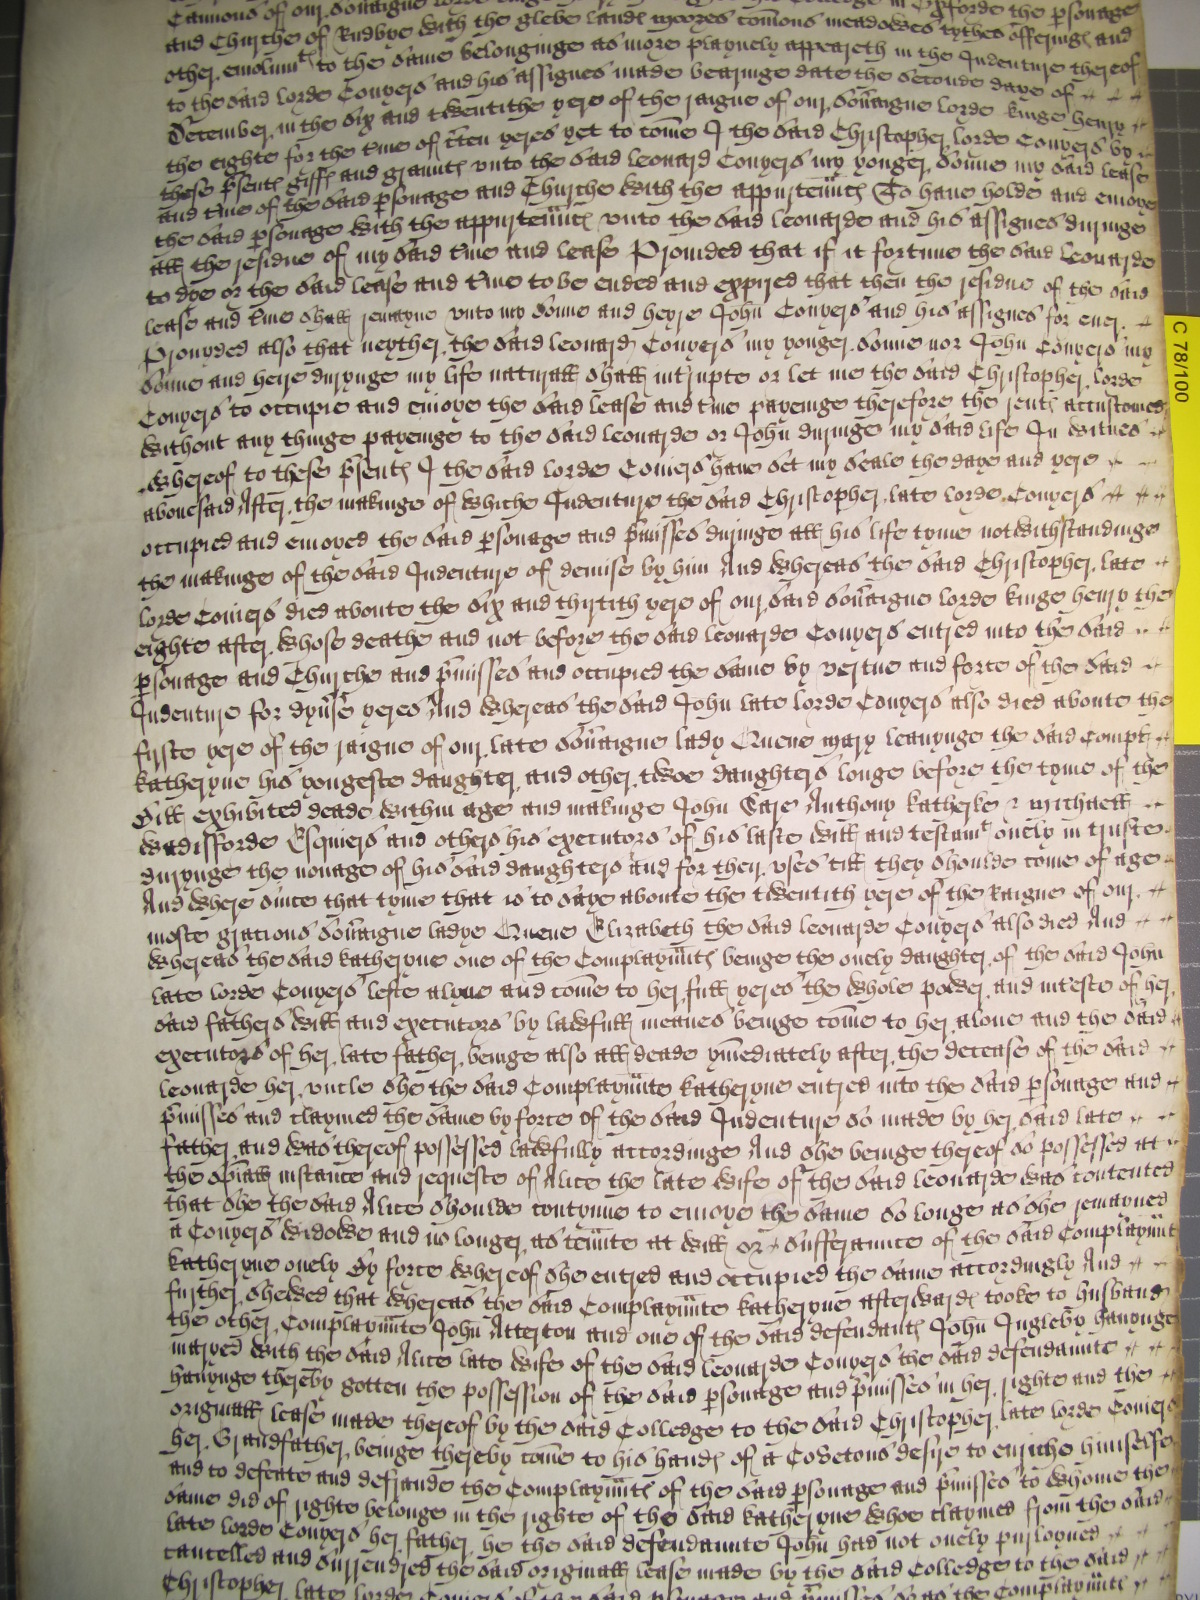 Cannons of our Souaigne lorde in Oxforde the psonage
and Churche of Rudbye with the glebe lands moores comons meadowes tythes offerings and
other emolumts to the same belonginge as more playnely appeareth in the Indenture thereof
to the said lorde Conyers and his assignes made bearinge date the seconde daye of
December in the Six and twentithe yere of the raigne of our Souaigne lorde kinge henry
the eighte for the tme of tten yeres yet to come I the said Christopher lorde Conyers by
these psents giffe and graunte vnto the said leonard Conyers my yonger sonne my said lease
and tme of the said psonage and Churche with the appurtennce To haue holde and enioye
the said psonage with the appurtennce vnto the said leonarde and his assignes duringe
all the residue of my said tme and lease Prouided that if it fortune the said leonarde
to dye or the said lease and tme to be ended and expired that then the residue of the said
lease and tme shall remayne vnto my sonne and heyre John Conyers and his assignes for euer
Prouyded also that neyther the said leonard Conyers my yonger sonne nor John Conyers my
sonne and heire durynge my life naturall shall intrupte or let me the said Christopher lorde
Conyers to occupie and enioye the said lease and tme payenge therefore the rents accustomed
without any thinge payenge to the said leonarde or John duringe my said life In witnes
whereof to these psents I the said lorde Coniers haue set my seale the daye and yere
abouesaid After the makinge of whiche Indenture the said Christopher late lorde Conyers
occupied and enioyed the said psonage and pmisses duringe all his life tyme notwithstandinge
the makinge of the said Indenture of demise by him And whereas the said Christopher late
lorde Coniers died aboute the Six and thirtith yere of our said Souaigne lorde kinge henry the
eighte after whose deathe and not before the said leonarde Conyers entred into the said
psonage and Churche and pmisses and occupied the same by vertue and force of the said
Indenture for dyuse yeres And whereas the said John late lorde Conyers also died aboute the
firste yere of the raigne of our late Souaigne lady Quene Mary leauynge the said Complt
katheryne his yongeste daughter and other twoe daughters longe before the tyme of the
Bill exhibited deade within age and makinge John Anthony & Michaell
Esquiers and others his executors of his laste will and testamt onely in truste
durynge the nonage of his said daughters and for their vses till they shoulde come of age
And where since that tyme that is to saye aboute the twentith yere of the Raigne of our
moste gratious Souaigne ladye Quene Elizabeth the said leonarde Conyers also died And
whereas the said katheryne one of the Complaynnts beinge the onely daughter of the said John
late lorde Conyers lefte alyue and come to her full yeres the whole power and inteste of her
said fathers will and executors by lawfull meanes beinge come to her alone and the said
executors of her late father beinge also all deade ymediately after the decease of the said
leonarde her vncle she the said Complaynnte katheryne entred into the said psonage and
pmisses and claymed the same by force of the said Indenture so made by her said late
father and was thereof possessed lawfully accordinge And she beinge thereof so possessed at
the spiall instance and requeste of Alice the late wife of the said leonarde was contented
that she the said Alice shoulde contynue to enioye the same so longe as she remayned
a Conyers widowe and no longer as tennte at will or sufferaunce of the said Complaynnt
katheryne onely By force whereof she entred and occupied the same accordingly And
further shewed that whereas the said Complaynnte katheryne afterwards tooke to husband
the other Complaynnte John Atterton and one of the said defendants John Ingleby hauynge
maryed with the said Alice late wife of the said leonarde Conyers the said defendaunte
hauynge thereby gotten the possession of the said psonage and pmisses in her righte and the
originall lease made thereof by the said Colledge to the said Christopher late lorde Coniers
her Grandfather beinge thereby come to his hands of a Covetous desire to enriche himselfe
and to defeate and defraude the Complaynnts of the said psonage and pmisses to whome the
same did of righte belonge in the righte of the said katheryne whoe claymed from the said
late lorde Conyers her father he the said defendaunte John had not onely purloyned
cancelled and surrendred the said originall lease made by the said Colledge to the said
Christopher late lorde Coniers of the said psonage and pmisses so as the Complaynnts
C 78/100